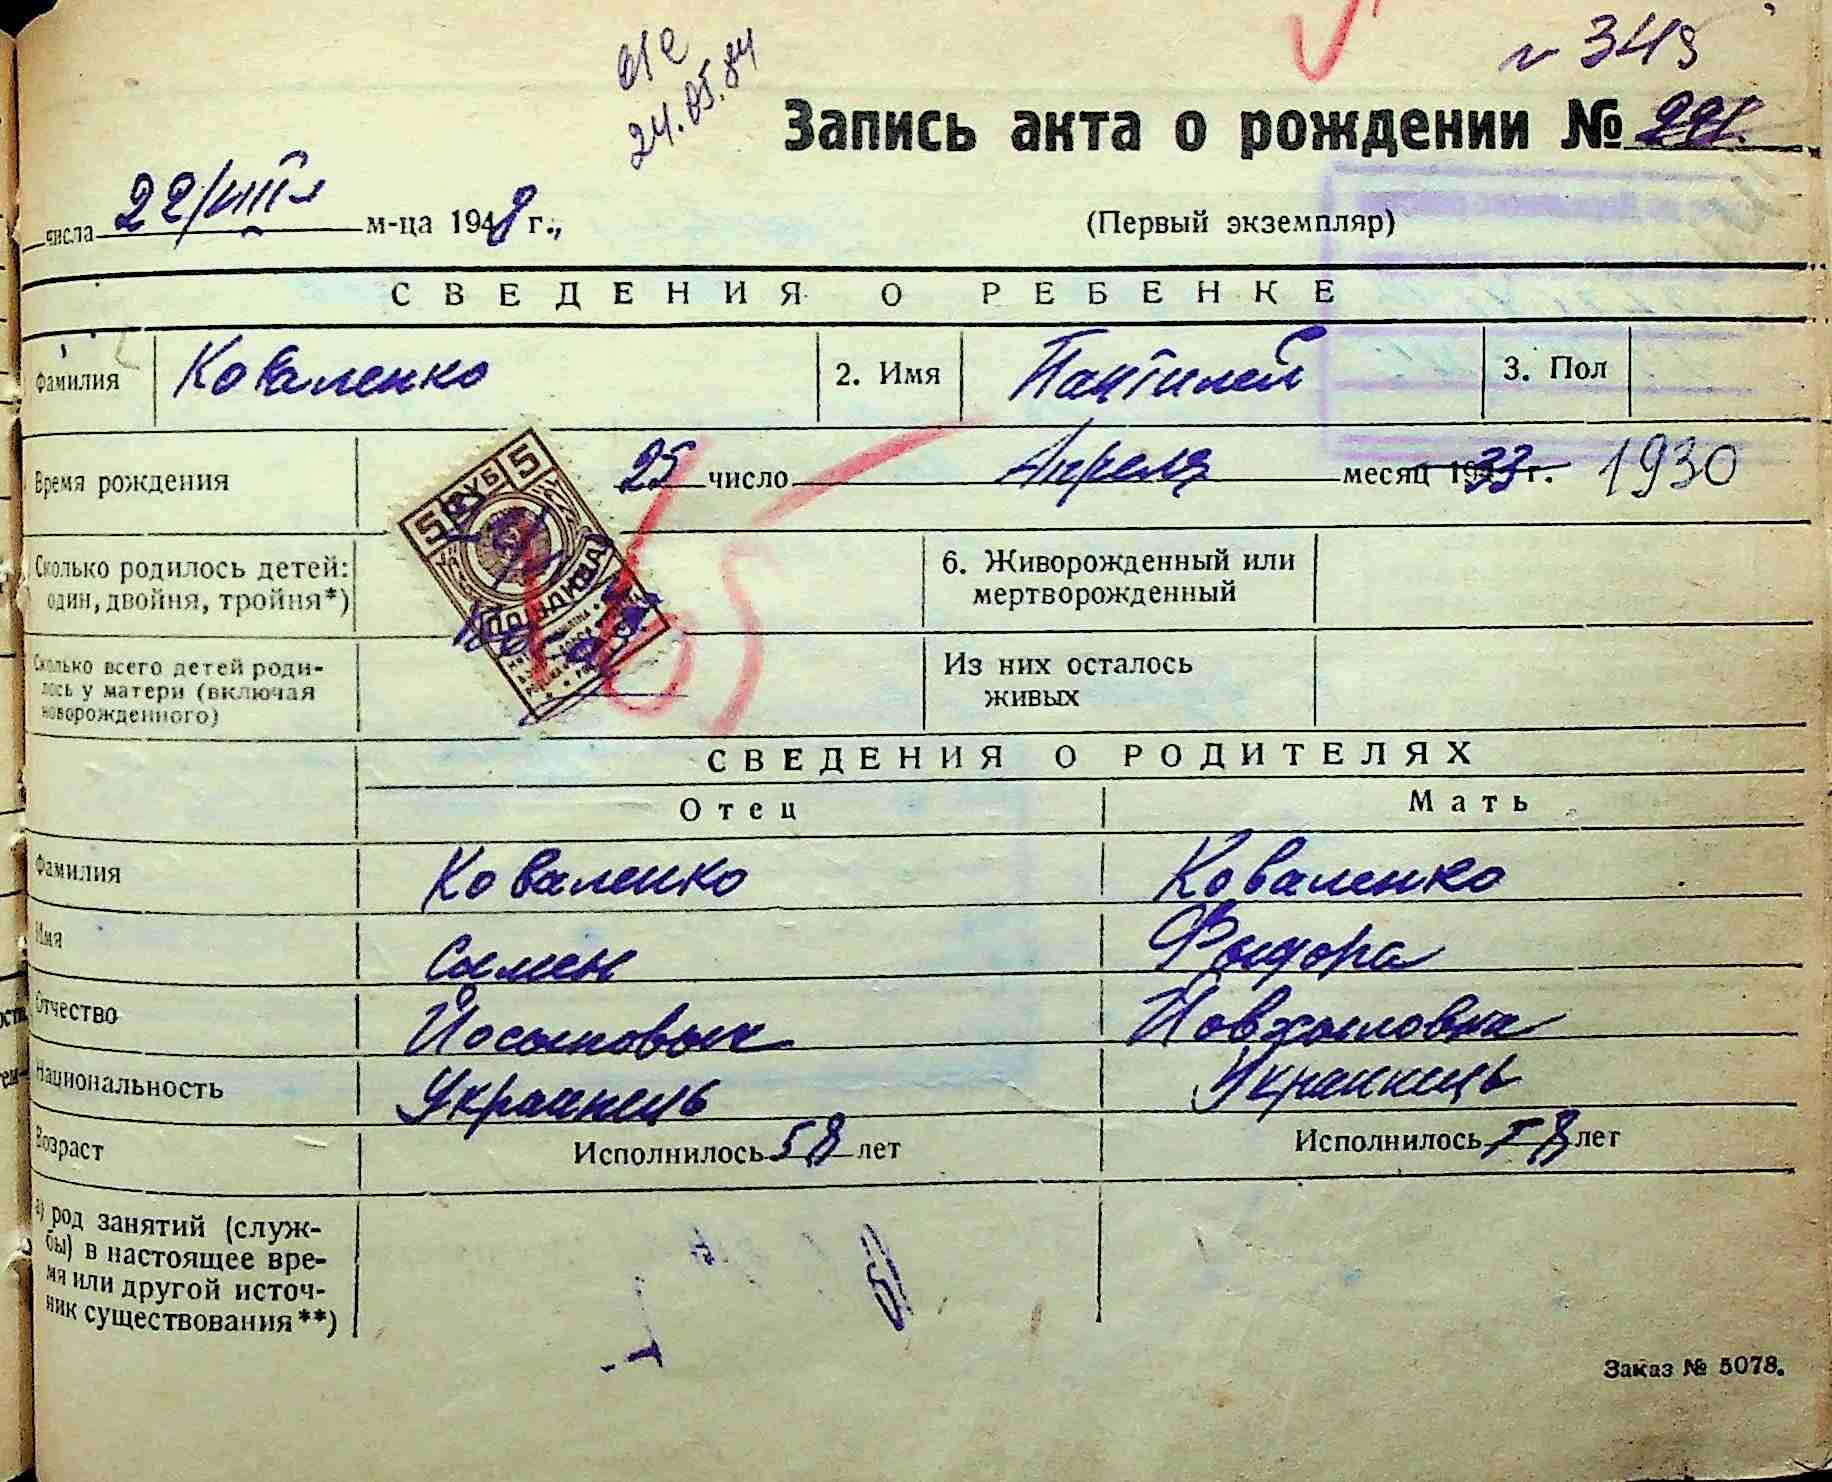 № 343
24.05.84
Запись акта о рождении №
числа 22/VIII м-ца 1948 г.,
(Первый экземпляр)
СВЕДЕНИЯ О РЕБЕНКЕ
Фамилия Коваленко 2. Имя Пантилей 3. Пол
Время рождения 25 число Апреля месяц 1933 г. 1930
5 РУБ 5
165
Сколько родилось детей: 6. Живорожденный или
один, двойня, тройня*) мертворожденный
Сколько всего детей роди- Из них осталось
лось у матери (включая живых
новорожденного)
СВЕДЕНИЯ О РОДИТЕЛЯХ
Отец Мать
Фамилия Коваленко Коваленко
Имя Самен Фыдора
Отчество Йосыповыч Йовхымовна
Национальность Украинець Украинець
Возраст Исполнилось 58 лет Исполнилось 58 лет
а) род занятий (служ-
бы) в настоящее вре-
мя или другой источ-
ник существования**)
Заказ № 5078.